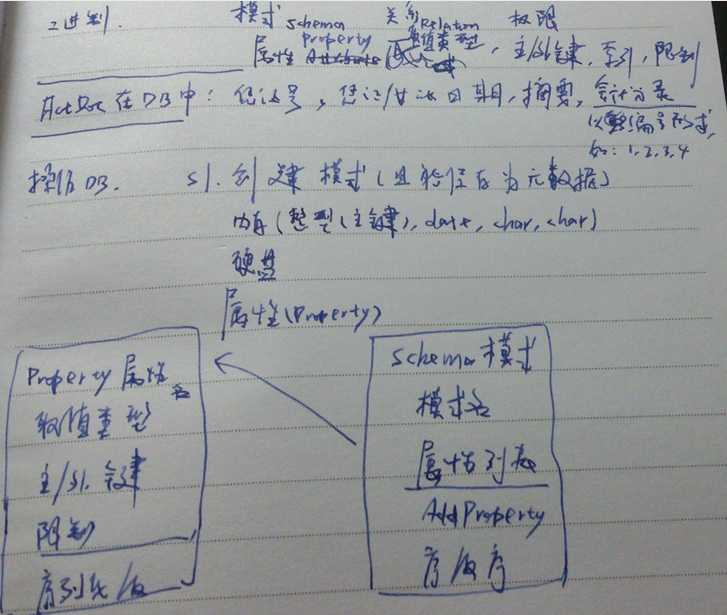 二进制. 模式 Schema 关系 Relation 权限
属性 Property (取值类型, 主/外键, 索引, 限制
ActDoc 在 DB 中: 凭证号, 凭证/ 日期, 摘要, 会计分录
以 编号形式,
如: 1,2,3,4
操作DB. S1. 创建模式(且 保存为元数据)
内存(整型(主键), date, char, char)
硬盘
属性(Property)
Property 属性名
取值类型
主/外键
限制
序列化/反
Schema 模式
模式名
属性列表
AddProperty
序/反序